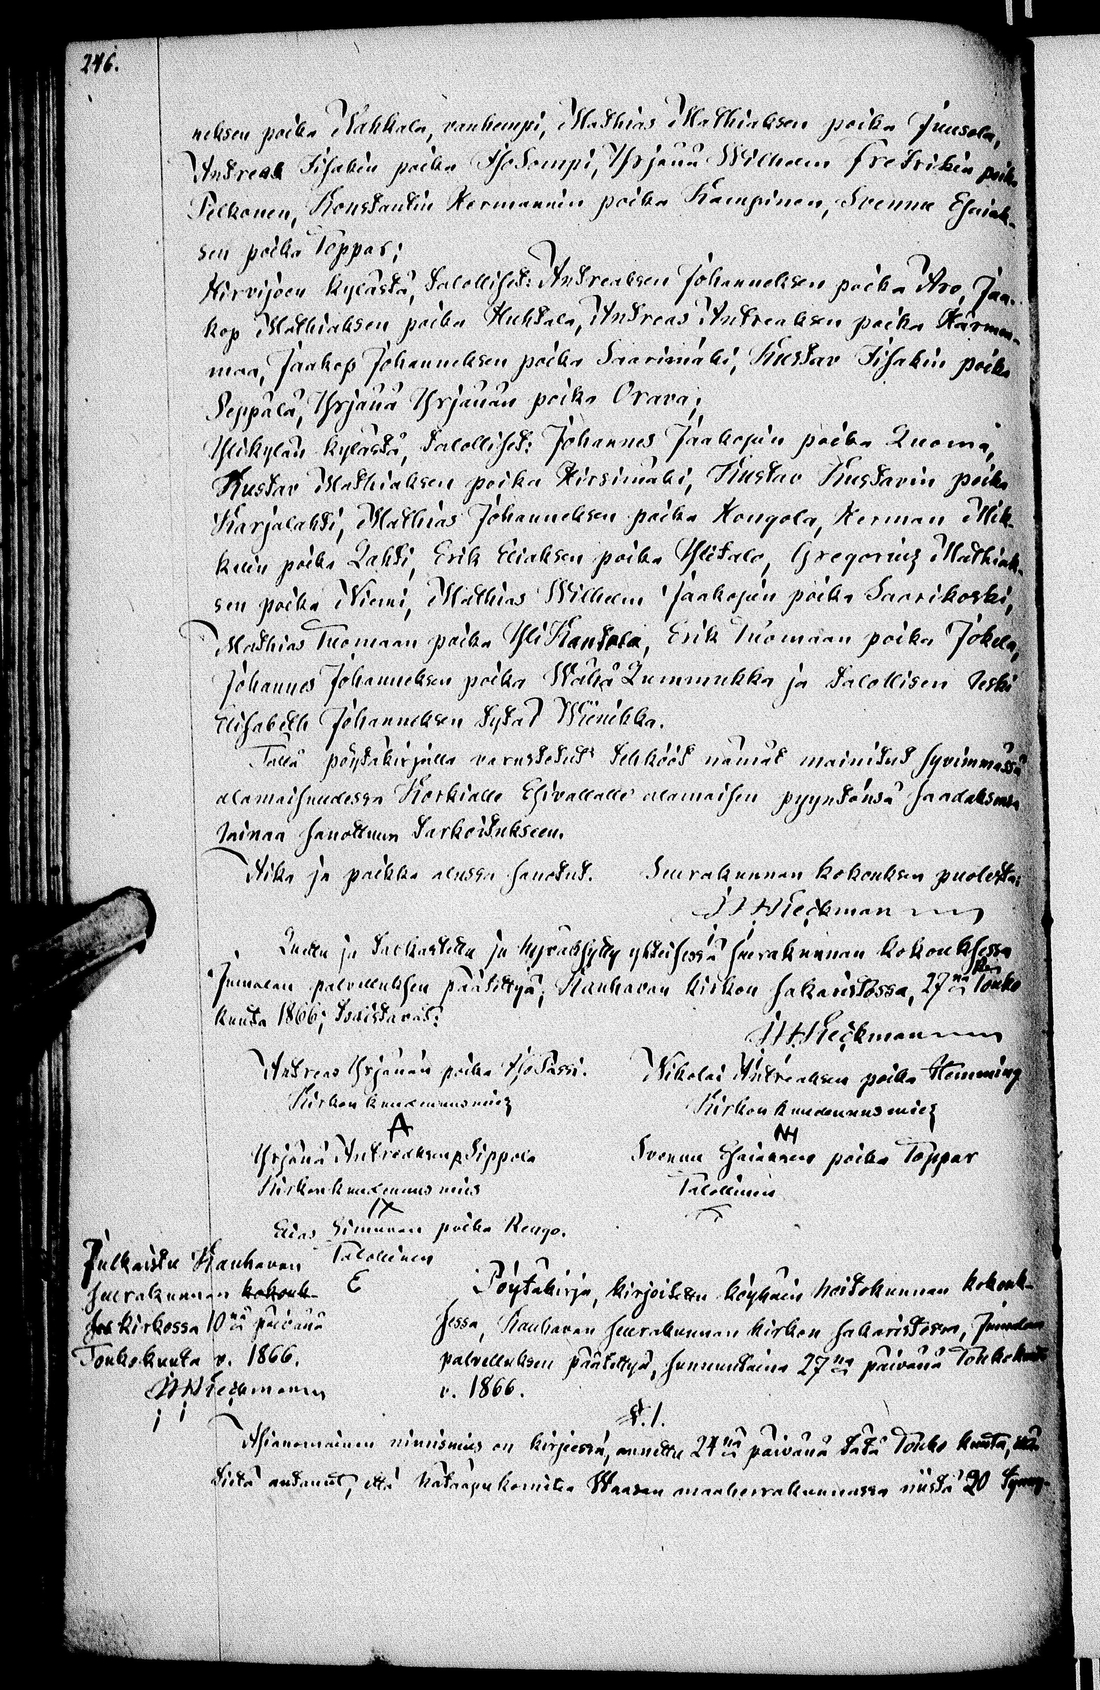 246.
neksen poika Nahkala, vanhempi, Mathias Mathiaksen poika Juusola,
Andreas Iisakin poika Isosompi, Yrjänä Wilhelm Fredrikin poika
Pelkonen, Konstantin Hermannin poika Kamppinen, Svenne Esaiak-
sen poika Toppar;
Hirvijoen kylästä, talolliset: Andreaksen Johanneksen poika Aro, Jaa-
kop Mathiaksen poika Huhtala, Andreas Andreaksen poika Härmän-
maa, Jaakop Johanneksen poika Saarimäki, Kustav Iisakin poika
Seppälä, Yrjänä Yrjänän poika Orava;
Ylikylän kylästä, talolliset: Johannes Jaakopin poika Luoma,
Kustav Mathiaksen poika Hirsimäki, Kustav Kustavin poika
Karjalahti, Mathias Johanneksen poika Hongola, Herman Mik-
kelin poika Lahti, Erik Eliaksen poika Ylitalo, Gregorius Mathiak-
sen poika Niemi, Mathias Wilhelm Jaakopin poika Saarikoski,
Mathias Tuomaan poika YliKantola, Erik Tuomaan poika Jokela,
Johannes Johanneksen poika WähäLummukka ja talollisen leski
Elisabeth Johanneksen tytär Wienikka.
Tällä pöytäkirjalla varustetut tehkööt nämät mainitut syvimmässä
alamaisuudessa Korkialle Esivallalle alamaisen pyyntönsä saadaksensa
lainaa sanottuun tarkoitukseen.
Aika ja paikka alussa sanotut. Seurakunnan kokouksen puolesta:
J H Kieckman
Luettu ja tarkastettu ja hyväksytty yhteisessä seurakunnan kokouksessa
Jumalan palvelluksen päätettyä, Kauhavan kirkon sakaristossa, 27nä Touko
kuuta 1866; todistavat:
J H Kieckman
Andreas Yrjänän poika IsoPassi. Nikolai Andreaksen poika Hemming
Kirkon kuudennusmies Kirkon kuudennusmies
A NH
Yrjänä Andreaksen p. Sippola Svenne Esaiaksen poika Toppar
Kirkon kuudennusmies Talollinen
Elias Simunan poika Rengo.
Talollinen
E
Julkaistu Kauhavan
seurakunnan kokouk-
kirkossa 10nä päivänä
Toukokuuta v. 1866.
J H Kieckman
Pöytäkirja, kirjoitettu köyhäin hoitokunnan kokouk-
sessa, Kauhavan seurakunnan kirkon sakaristossa, Jumalan
palvelluksen päätettyä, sunnuntaina 27nä päivänä Toukokuuta
v. 1866.
§. 1.
Asianomainen nimismies on kirjeessä, annettu 24nä päivänä tätä Toukokuuta,
tietä antanut, että hätäapukomitea Waasan maaherrakunnassa niistä 20